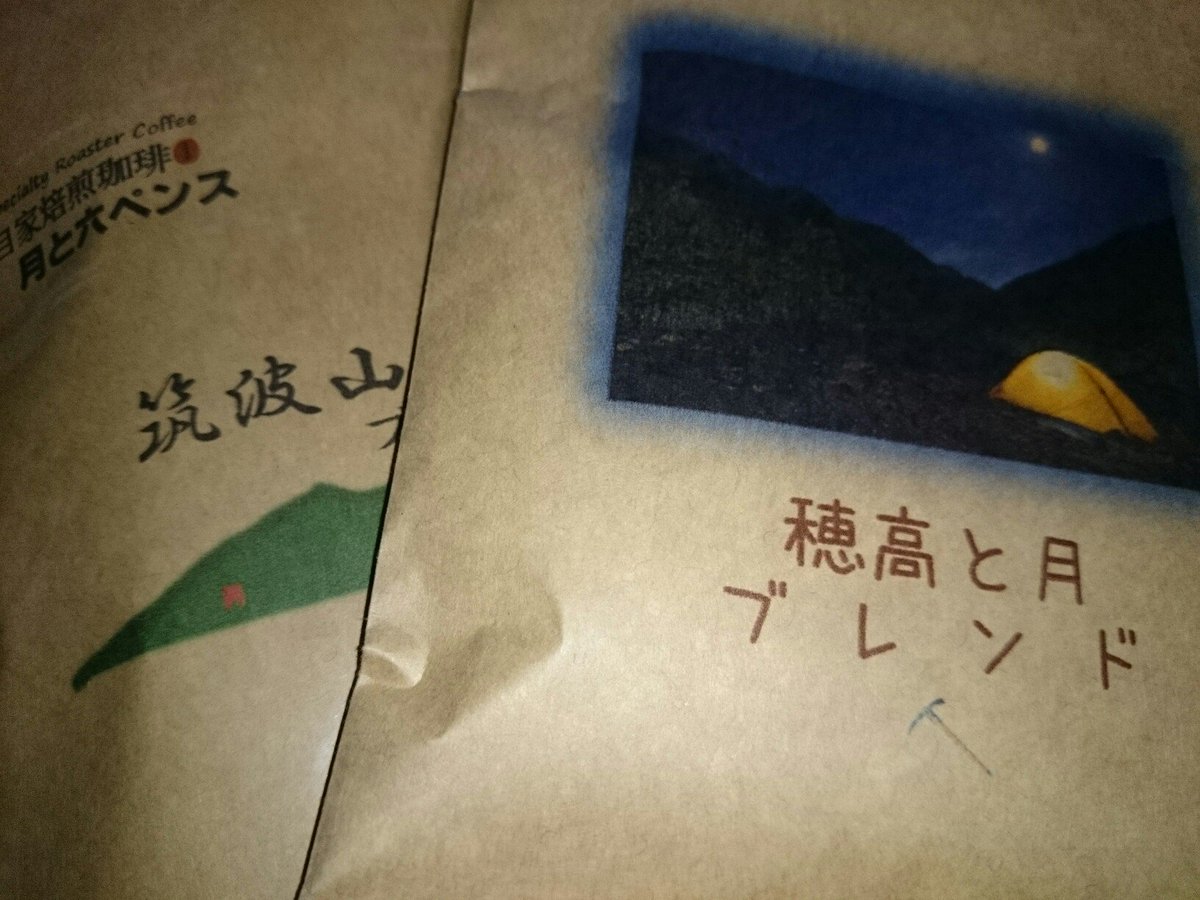 Roaster Coffee
家焙煎珈琲
月と六ペンス
筑波山
穂高と月
ブレンド